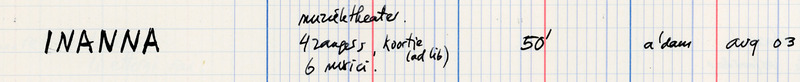 muziektheater.
INANNA 4 zangers, koortje 50' a'dam aug 03
(ad lib)
6 musici.